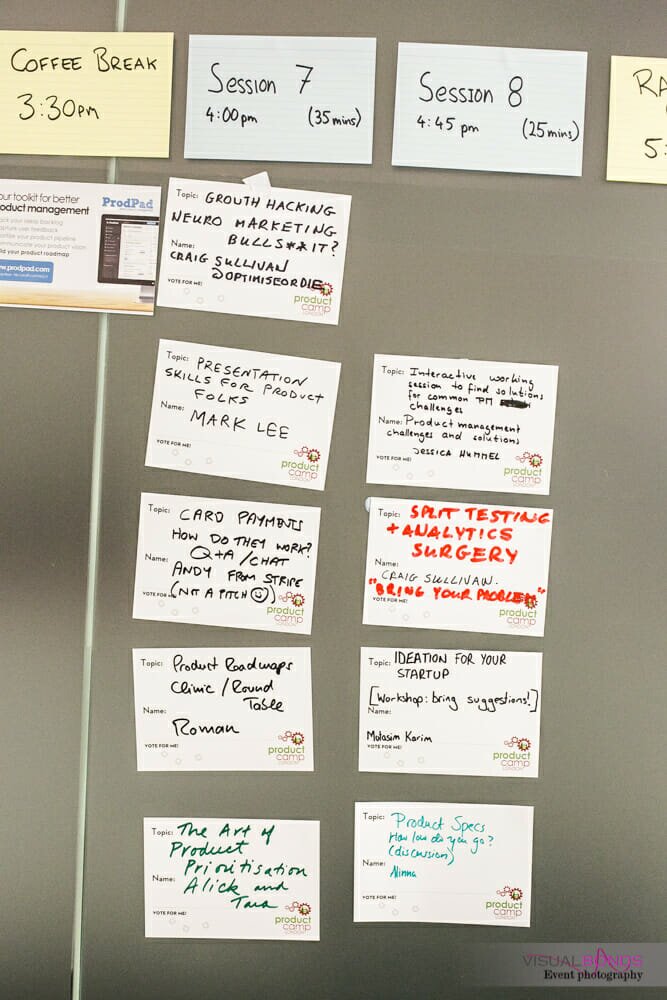 COFFEE BREAK
3:30PM
Session 7
4:00pm (35mins)
Session 8
4:45 pm (25mins)
RA
5:
our toolkit for better
product management
ProdPad
capture user feedback
communicate your product vision
build your product roadmap
www.prodpad.com
Topic: GROUTH HACKING
NEURO MARKETING
BULLS**IT?
Name:
CRAIG SULLIVAN
@OPTIMISEORDIE
VOTE FOR ME!
product
camp
LONDON
Topic: PRESENTATION
SKILLS FOR PRODUCT
FOLKS
Name: MARK LEE
VOTE FOR ME!
product
camp
LONDON
Topic: Interactive working
session to find solutions
for common PM
challenges
Name: Product management
challenges and solutions
JESSICA HUMMEL
VOTE FOR ME!
product
camp
LONDON
Topic: CARD PAYMENTS
HOW DO THEY WORK?
Q+A/CHAT
Name: ANDY FROM STRIPE
(NOT A PITCH ☺)
VOTE FOR ME!
product
camp
LONDON
Topic: SPLIT TESTING
+ ANALYTICS
SURGERY
Name:
CRAIG SULLIVAN.
"BRING YOUR PROBLEM"
VOTE FOR ME!
product
camp
LONDON
Topic: Product Roadmaps
Clinic / Round
Table
Name:
Roman
VOTE FOR ME!
product
camp
LONDON
Topic: IDEATION FOR YOUR
STARTUP
[Workshop: bring suggestions!]
Name:
Karim
VOTE FOR ME!
product
camp
LONDON
Topic: The Art of
Product
Prioritisation
Name: Alick and
Tara
VOTE FOR ME!
product
camp
LONDON
Topic: Product Specs
How low do you go?
(discussion)
Name:
Ninna
VOTE FOR ME!
product
camp
LONDON
VISUALBONDS
Event photography